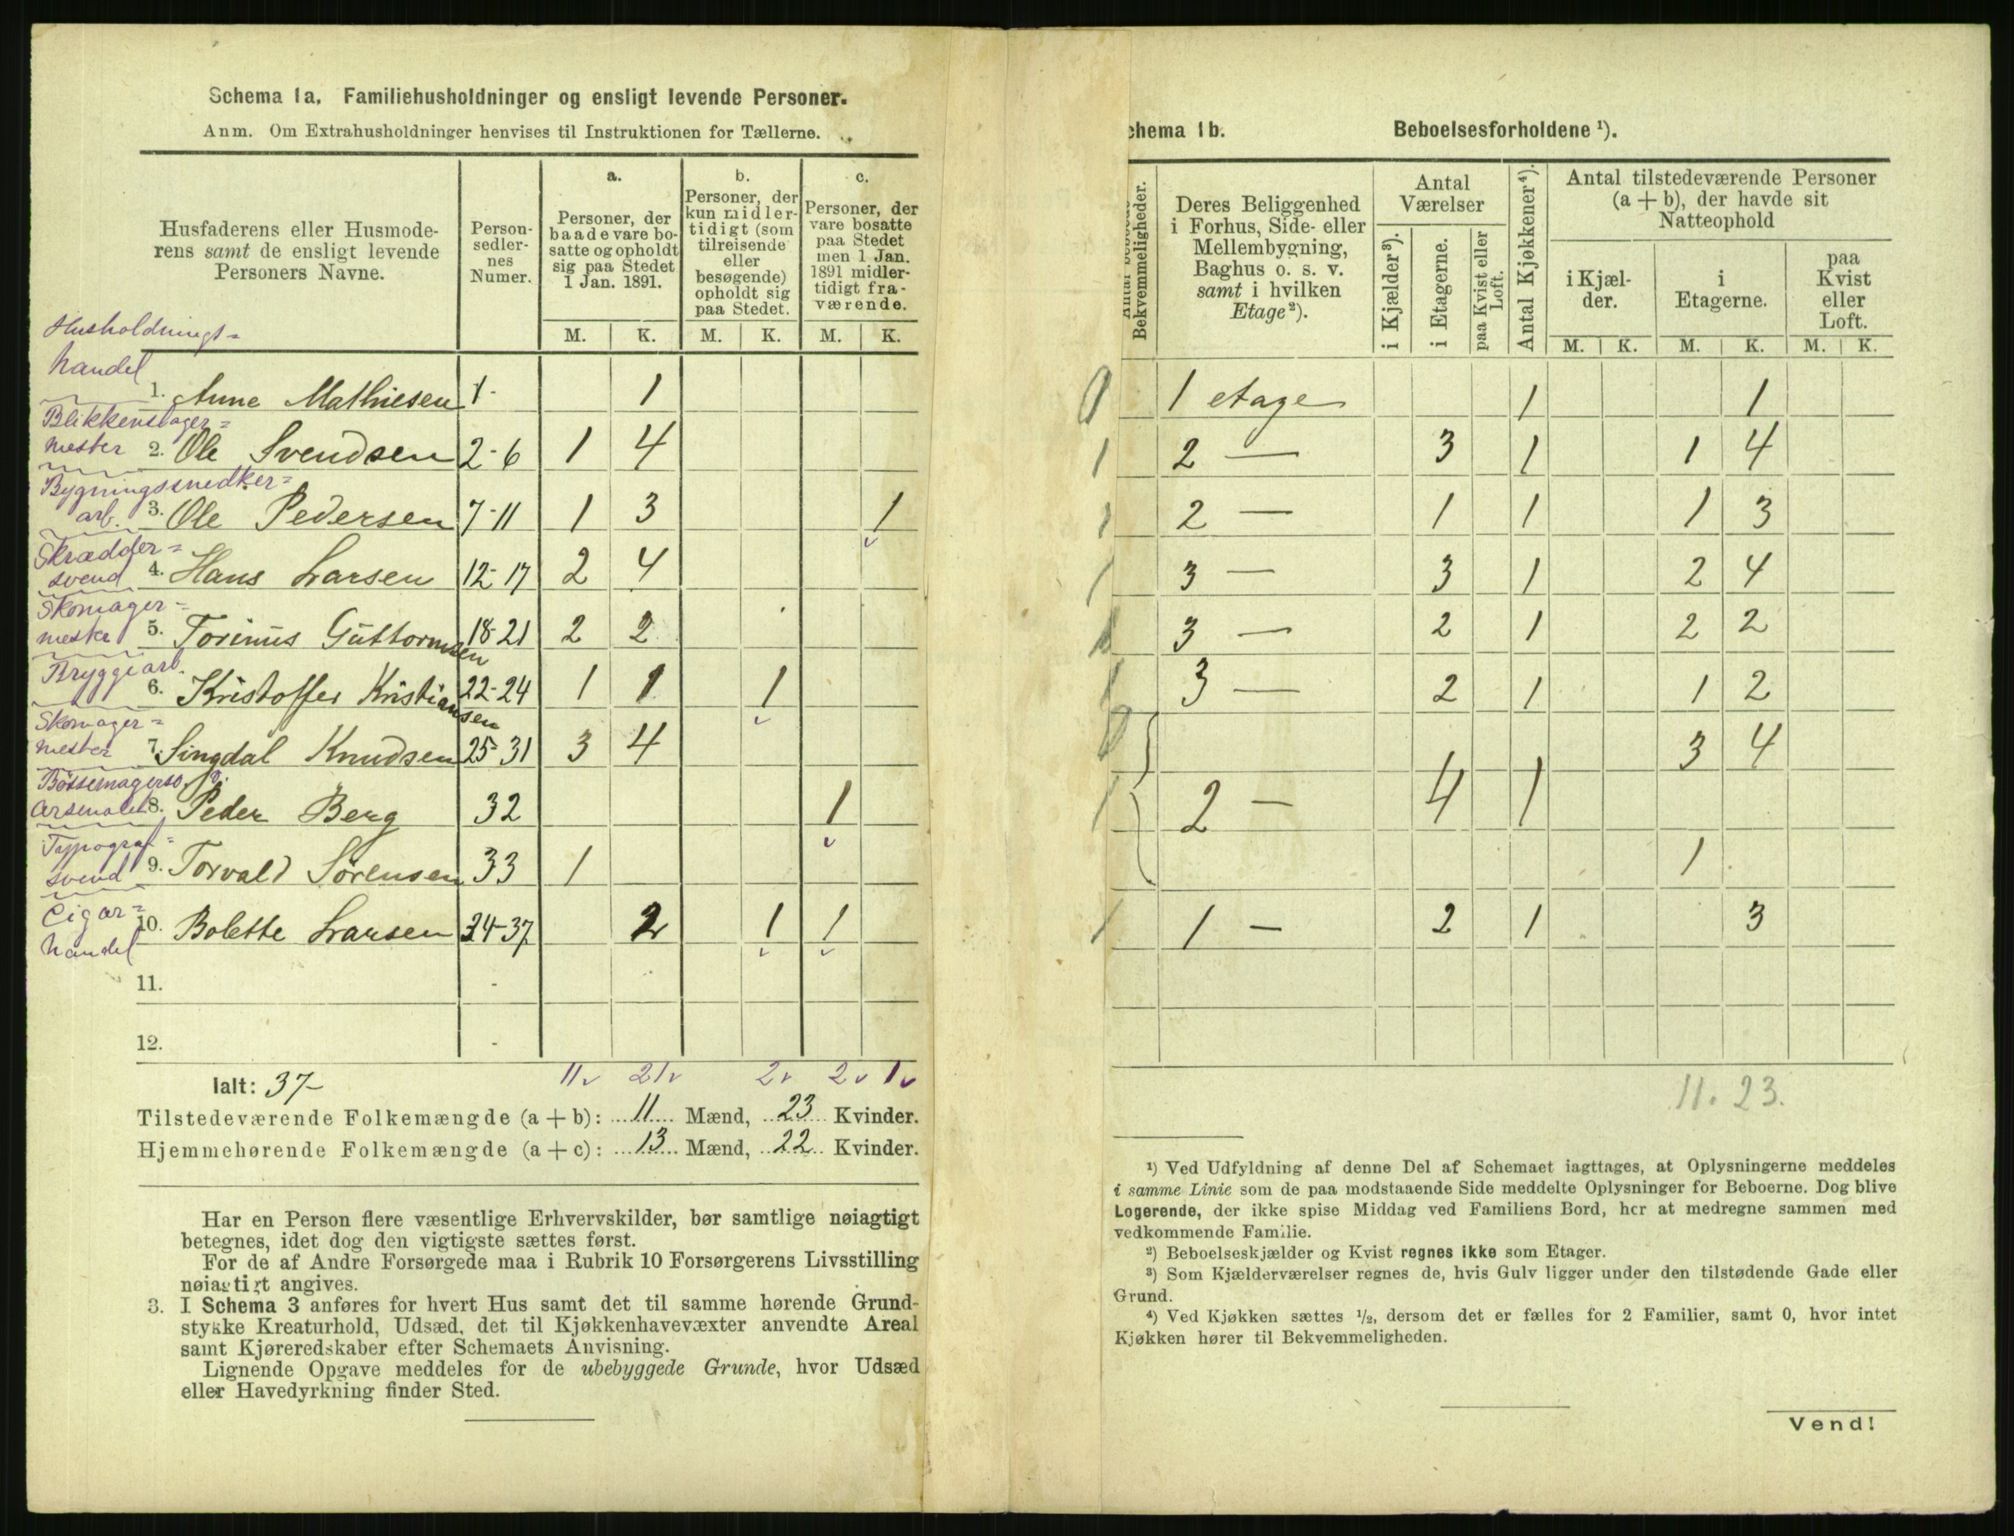 Schema 1a. Familiehusholdninger og ensligt levende Personer.
Anm. Om Extrahusholdninger henvises til Instruktionen for Tællerne.
Husfaderens eller Husmoderens samt de ensligt levende Personers Navne.
Person-sedlernes Numer.
a. Personer, der baade vare bosatte og opholdt sig paa Stedet 1 Jan. 1891.
b. Personer, der kun midlertidigt (som tilreisende eller besøgende) opholdt sig paa Stedet.
c. Personer, der vare bosatte paa Stedet men 1 Jan. 1891 midlertidigt fraværende.
M. K. M. K. M. K.
Husholdningshandel
1. Anne Mathiesen 1- 1
Blikkenslagermester
2. Ole Svendsen 2-6 1 4
Bygningssnedkerarb.
3. Ole Pedersen 7-11 1 3 1
Skrædder=svend
4. Hans Larsen 12-17 2 4
Skomager=mester
5. Torinus Guttormsen 18-21 2 2
Bryggearb.
6. Kristoffer Kristiansen 22-24 1 1 1
Skomager=mester
7. Singdal Knudsen 25-31 3 4
Bøssemagersv.
Arsenalet
8. Peder Berg 32 1
Typograf=svend
9. Torvald Sørensen 33 1
Cigar=handel
10. Bolette Larsen 34-37 2 1 1
11.
12.
11 21 2 2 1
Ialt: 37-
Tilstedeværende Folkemængde (a + b): 11 Mænd, 23 Kvinder.
Hjemmehørende Folkemængde (a + c): 13 Mænd, 22 Kvinder.
Har en Person flere væsentlige Erhvervskilder, bør samtlige nøiagtigt
betegnes, idet dog den vigtigste sættes først.
For de af Andre Forsørgede maa i Rubrik 10 Forsørgerens Livsstilling
nøiagtigt angives.
3. I Schema 3 anføres for hvert Hus samt det til samme hørende Grund-
stykke Kreaturhold, Udsæd, det til Kjøkkenhavevæxter anvendte Areal
samt Kjøreredskaber efter Schemaets Anvisning.
Lignende Opgave meddeles for de ubebyggede Grunde, hvor Udsæd
eller Havedyrkning finder Sted.
chema 1b. Beboelsesforholdene ¹).
Bekvemmeligheder.
Deres Beliggenhed i Forhus, Side- eller Mellembygning, Baghus o. s. v. samt i hvilken Etage²).
Antal Værelser
i Kjælder³).
i Etagerne.
paa Kvist eller Loft.
Antal Kjøkkener⁴).
Antal tilstedeværende Personer (a + b), der havde sit Natteophold
i Kjælder.
i Etagerne.
paa Kvist eller Loft.
M. K. M. K. M. K.
1 etage 1 1
1 2 — 3 1 1 4
1 2 — 1 1 1 3
1 3 — 3 1 2 4
1 3 — 2 1 2 2
1 3 — 2 1 1 2
3 4
1 2 — 4 1
1
1 1 — 2 1 3
11. 23.
¹) Ved Udfyldning af denne Del af Schemaet iagttages, at Oplysningerne meddeles
i samme Linie som de paa modstaaende Side meddelte Oplysninger for Beboerne. Dog blive
Logerende, der ikke spise Middag ved Familiens Bord, her at medregne sammen med
vedkommende Familie.
²) Beboelseskjælder og Kvist regnes ikke som Etager.
³) Som Kjælderværelser regnes de, hvis Gulv ligger under den tilstødende Gade eller
Grund.
⁴) Ved Kjøkken sættes ½, dersom det er fælles for 2 Familier, samt 0, hvor intet
Kjøkken hører til Bekvemmeligheden.
Vend!